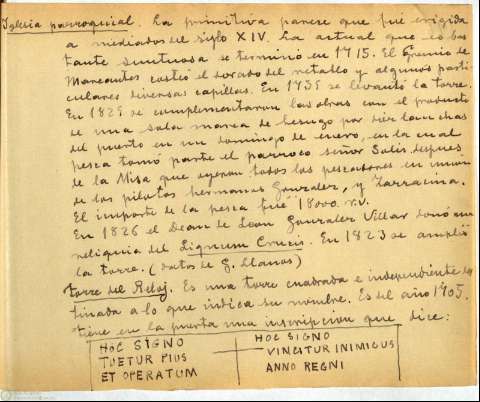 Iglesia parroquial. La primitiva parece que fué erigida
a mediados del siglo XIV. La actual que es bas
tante suntuosa se terminó en 1715. El Gremio de
Mareantes costeó el dorado del retablo y algunos parti
culares diversas capillas. En 1735 se levantó la torre.
En 1825 se complementaron las obras con el producto
de una sola marea de besugo por diez lanchas
del puerto en un domingo de enero, en la cual
pesca tomó parte el parroco señor Solis, despues
de la Misa que oyeron todos los pescadores en union
de los pilotos hermanos Gonzalez, y Zarracina.
El importe de la pesca fué 18000 r.v.
En 1826 el Dean de Leon Gonzalez Villar donó una
reliquia del Lignum Crucis. En 1823 se amplió
la torre. (datos de G. Llanos)
torre del Reloj. Es una torre cuadrada e independiente des
tinada a lo que indica su nombre. Es del año 1705.
tiene en la puerta una inscripcion que dice:
HOC SIGNO
TUETUR PIUS
ET OPERATUM
HOC SIGNO
VINCITUR INIMICUS
ANNO REGNI